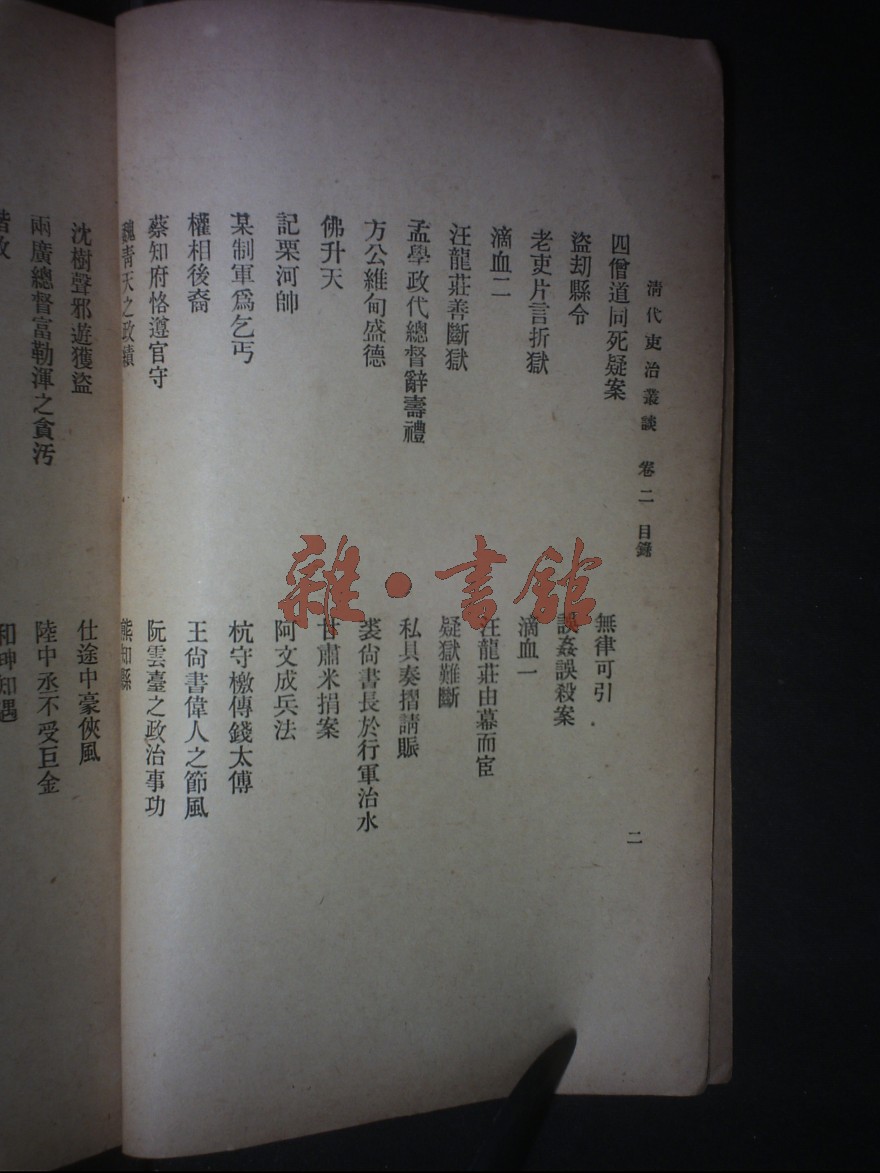 清代吏治叢談 卷二 目錄
二
四僧道同死疑案
無律可引
盜劫縣令
誤姦誤殺案
老吏片言折獄
滴血一
滴血二
汪龍莊由幕而宦
汪龍莊善斷獄
疑獄難斷
孟學政代總督辭壽禮
私具奏摺請賑
方公維甸盛德
裘尙書長於行軍治水
佛升天
甘肅米捐案
記栗河帥
阿文成兵法
某制軍爲乞丐
杭守檄傳錢太傅
權相後裔
王尙書偉人之節風
蔡知府恪遵官守
阮雲臺之政治事功
魏靑天之政績
熊知縣
沈樹聲邪遊獲盜
仕途中豪俠風
兩廣總督富勒渾之貪汚
陸中丞不受巨金
和珅知遇
雜·書館